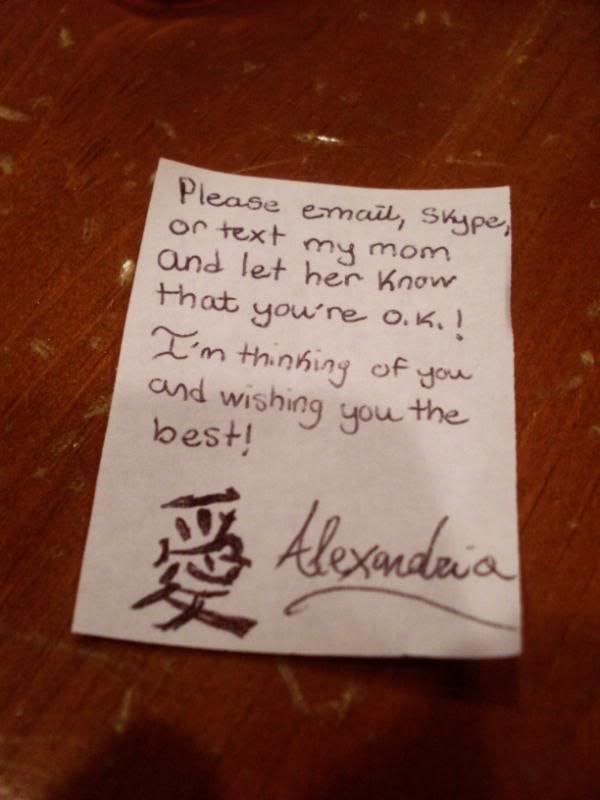 Please email, Skype,
or text my mom
and let her know
that you're o.k.!
I'm thinking of you
and wishing you the
best!
愛 Alexandria